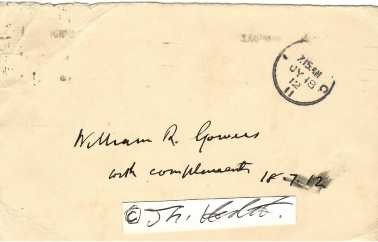 7.15 AM
JY 18
12
William R. Gowers
with compliments 18-7.12
© Th.